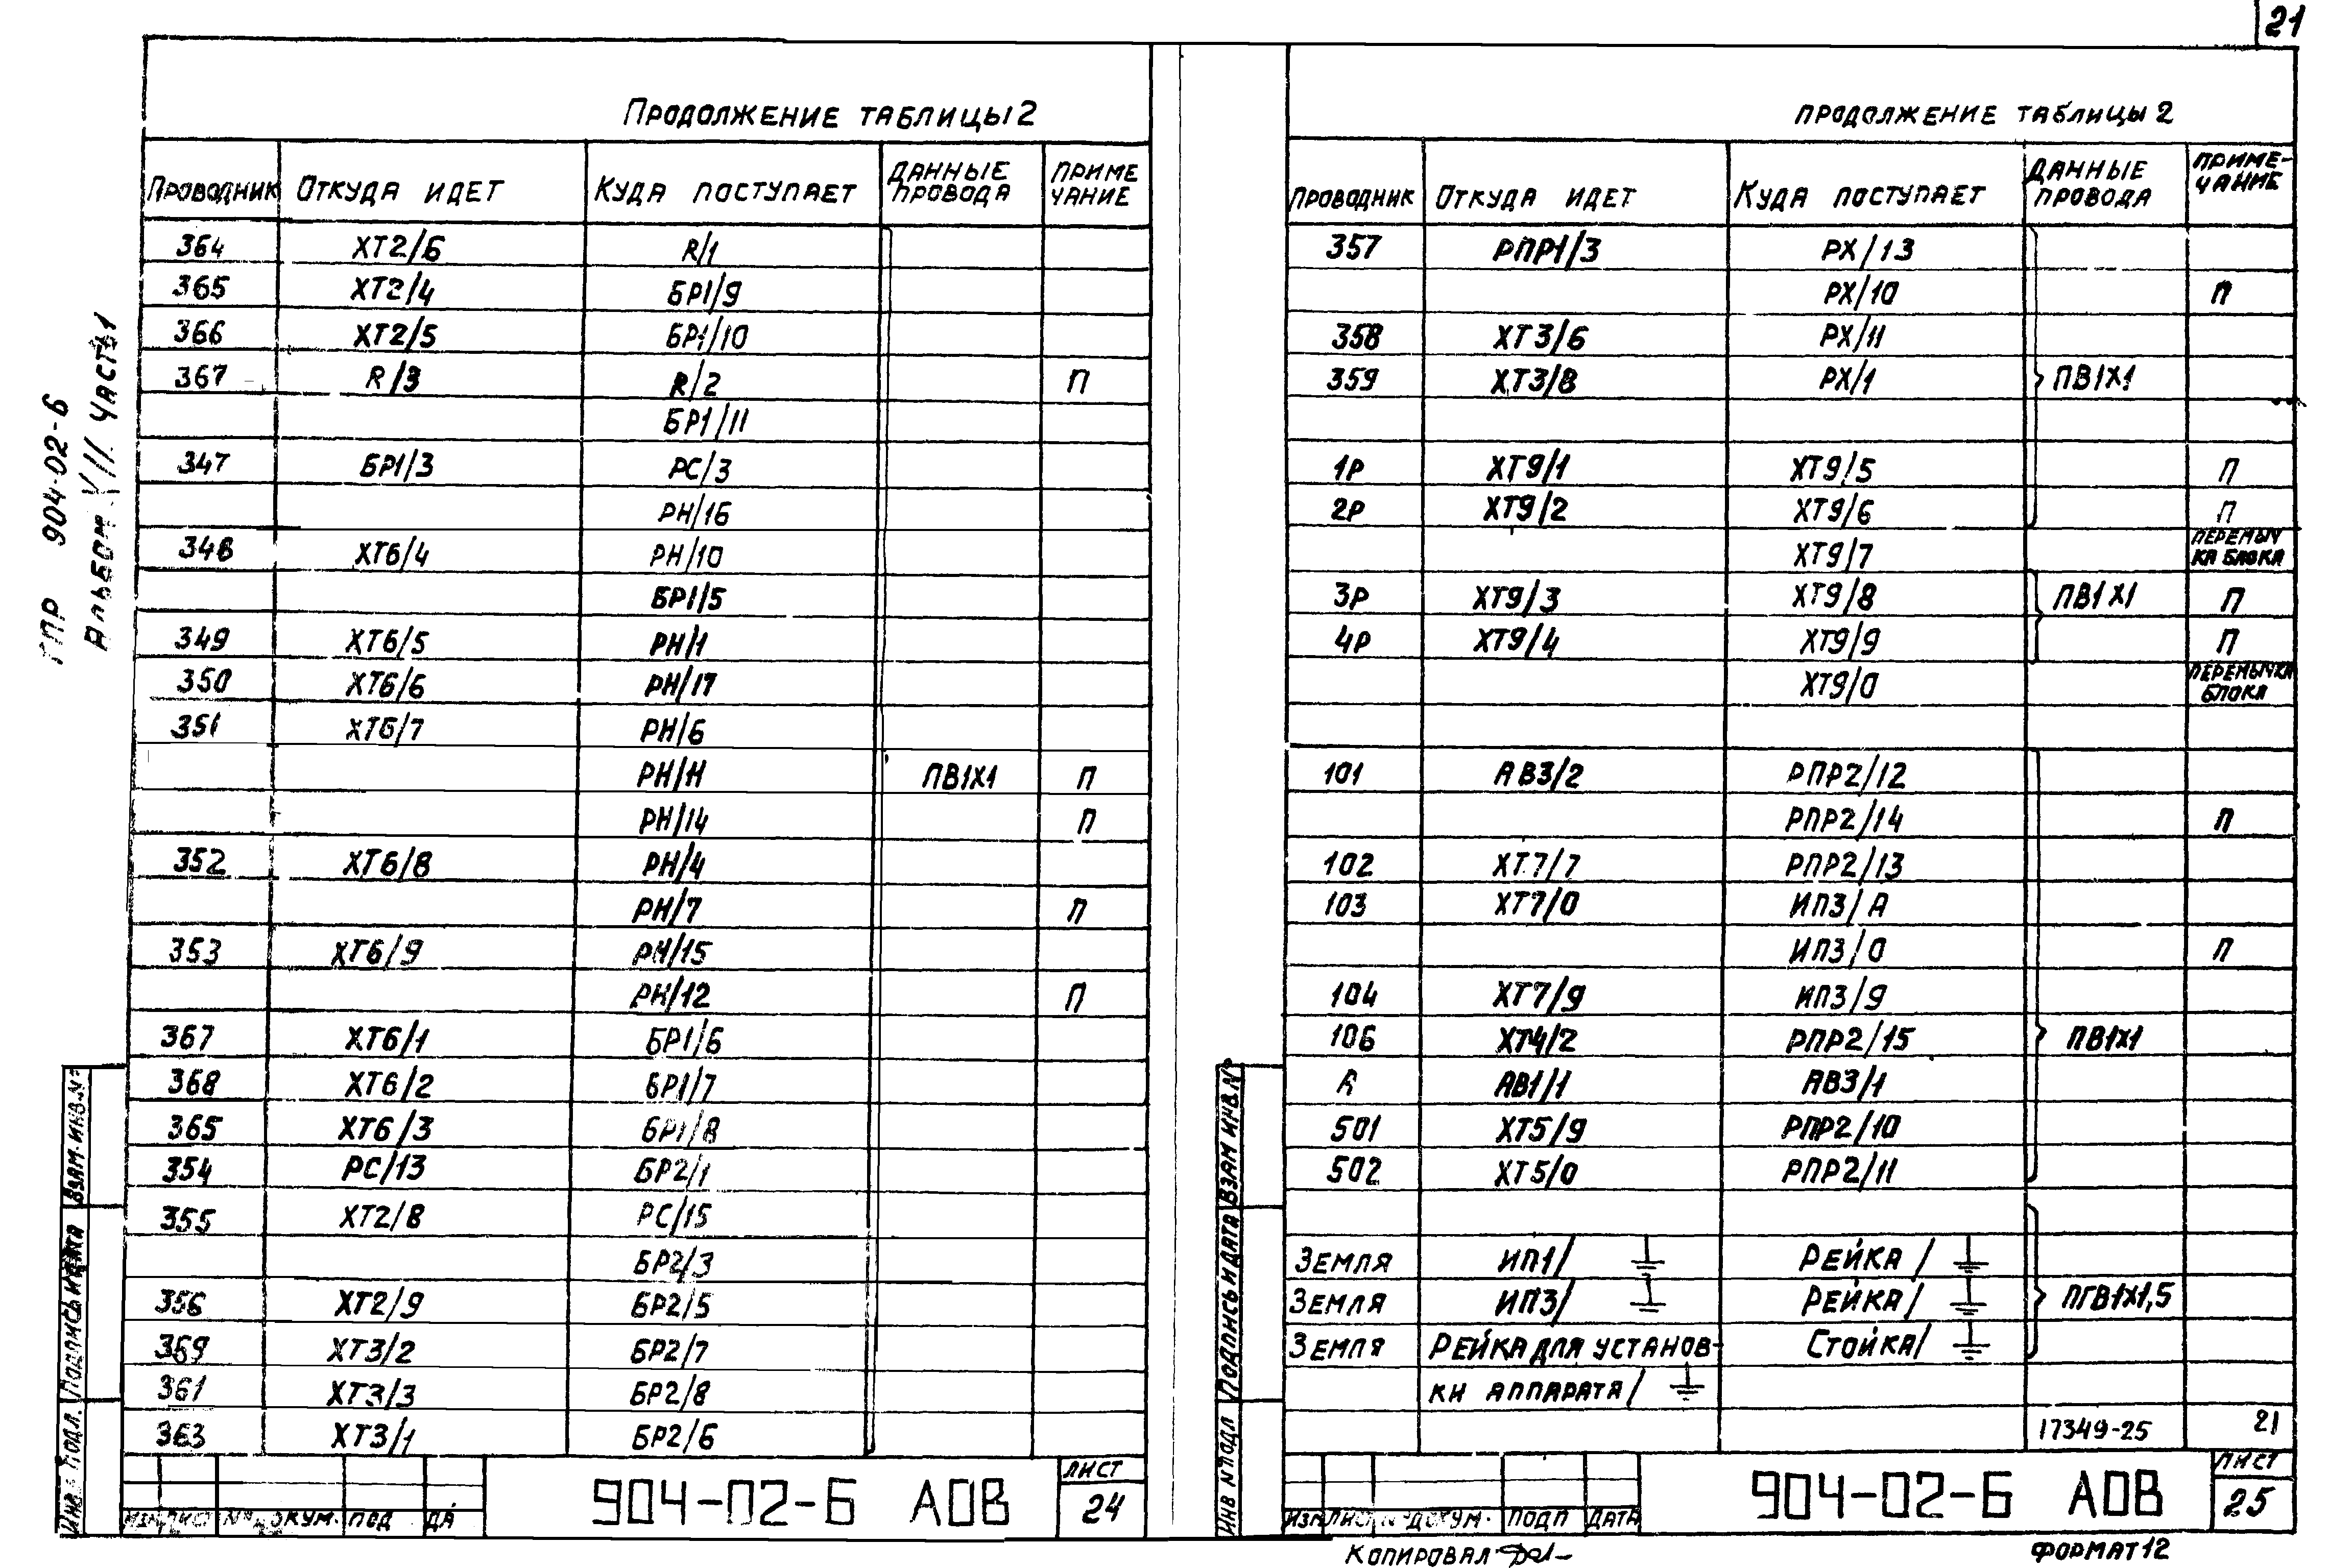 21
ТПР 904-02-6
Альбом VII. Часть 1
Продолжение таблицы 2
Проводник Откуда идет Куда поступает Данные провода Приме чание
364 ХТ2/6 R/1
365 ХТ2/4 БР1/9
366 ХТ2/5 БР1/10
367 R/3 R/2 П
БР1/11
347 БР1/3 РС/3
РН/16
348 ХТ6/4 РН/10
БР1/5
349 ХТ6/5 РН/1
350 ХТ6/6 РН/17
351 ХТ6/7 РН/6
РН/Н ПВ1Х1 П
РН/14 П
352 ХТ6/8 РН/4
РН/7 П
353 ХТ6/9 РН/15
РН/12 П
367 ХТ6/1 БР1/6
368 ХТ6/2 БР1/7
365 ХТ6/3 БР1/8
354 РС/13 БР2/1
355 ХТ2/8 РС/15
БР2/3
356 ХТ2/9 БР2/5
369 ХТ3/2 БР2/7
361 ХТ3/3 БР2/8
363 ХТ3/1 БР2/6
Взам. инв. №
Подпись и дата
Инв. № подл.
Изм Лист № докум. Под Да
904-02-6 АОВ
Лист
24
Продолжение таблицы 2
Проводник Откуда идет Куда поступает Данные провода Приме-чание
357 РПР1/3 РХ/13
РХ/10 П
358 ХТ3/6 РХ/11
359 ХТ3/8 РХ/1 ПВ1Х1
1Р ХТ9/1 ХТ9/5 П
2Р ХТ9/2 ХТ9/6 П
ХТ9/7 Перемыч ка блока
3Р ХТ9/3 ХТ9/8 ПВ1Х1 П
4Р ХТ9/4 ХТ9/9 П
ХТ9/0 Перемычка блока
101 АВ3/2 РПР2/12
РПР2/14 П
102 ХТ7/7 РПР2/13
103 ХТ7/0 ИП3/А
ИП3/0 П
104 ХТ7/9 ИП3/9
106 ХТ4/2 РПР2/15 ПВ1Х1
А АВ1/1 АВ3/1
501 ХТ5/9 РПР2/10
502 ХТ5/0 РПР2/11
Земля ИП1/ ⏚ Рейка/ ⏚
Земля ИП3/ ⏚ Рейка/ ⏚ ПГВ1Х1,5
Земля Рейка для установ- Стойка/ ⏚
ки аппарата/ ⏚
17349-25 21
Взам инв. №
Подпись и дата
Инв № подл
Изм Лис № докум. Подп Дата
904-02-6 АОВ
Лист
25
Копировал
Формат 12